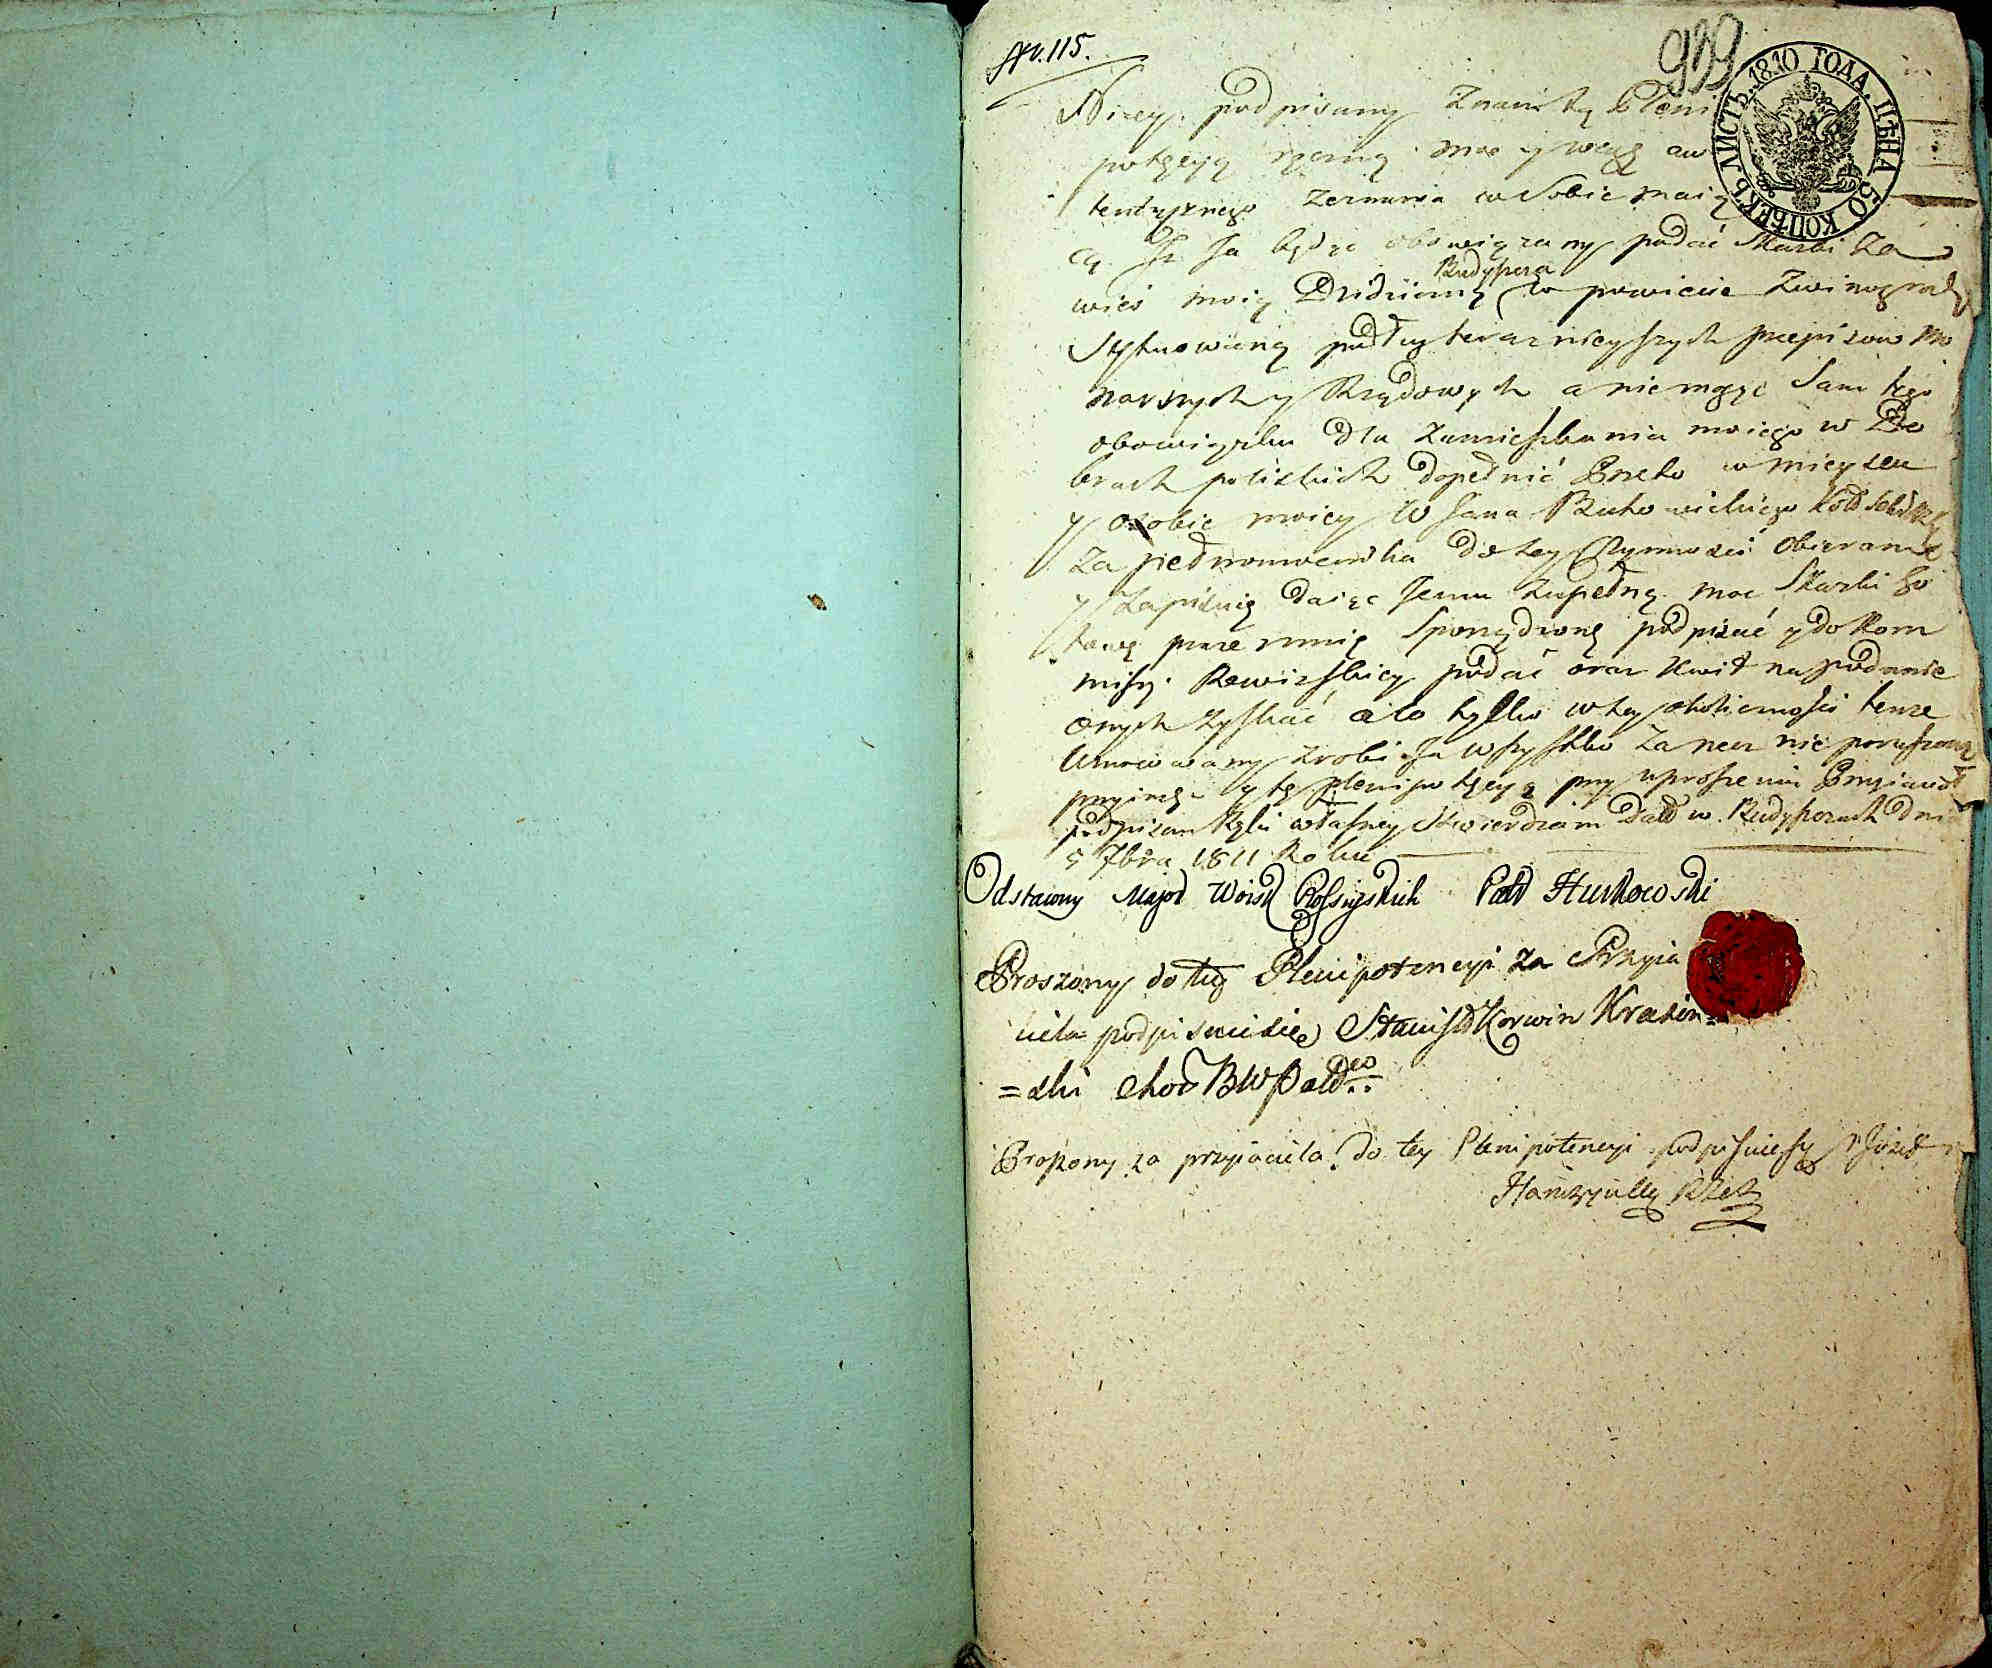 No. 115.
939
ЛИСТЪ. 1810 ГОДА. ЦѢНА 50 КОПѢЕКЪ
Nizey podpisany Znam tą Pleni
potęcyą moc y wagę au
tentycznego zeznania w Sobie maią
cą. Iż Ja będąc obowiązany podać Skaski za
Rudypera
wieś moią Dzidziczną w powiecie Zwinogrodz
Sytuowaną podług teraznieyszych przepisow Mo
narszych y Rządowych a niemogąc Sam tego
obowiązku dla zamieszkania moiego w Do
brach polizkich dopełnić Przeto w mieyscu
y osobie moiey W Jana Bukowieckiego
za pełnomocnika do tey czynnosci Obieram
y zapisuię daiąc Jemu zupełną moc Skaski Go
towe przezemnie Sporządzone podpisać y do Kom
misyi Rewizskiey podać oraz Kwit na podanie
onych zyskać a co tylko w tey okolicznosci tenze
Umocowany zrobi Ja wszystko za rzecz nieporuszoną
przyimę y tę plenipotęcyą przy uproszeniu Przyiaciół
podpisem Ręki własney stwierdzam Dałł w Rudyperach dnia
5 7bra 1811 Roku
Odstawny Major Woisk Rossyiskich Hurkowski
Proszony do tey Plenipotencyi za Przyia
ciela podpisuie się Stanisł Korwin Krasin=
=ski Chor BW
Proszony za przyiaciela do tey Plenipotencyi podpisuie się Jozef